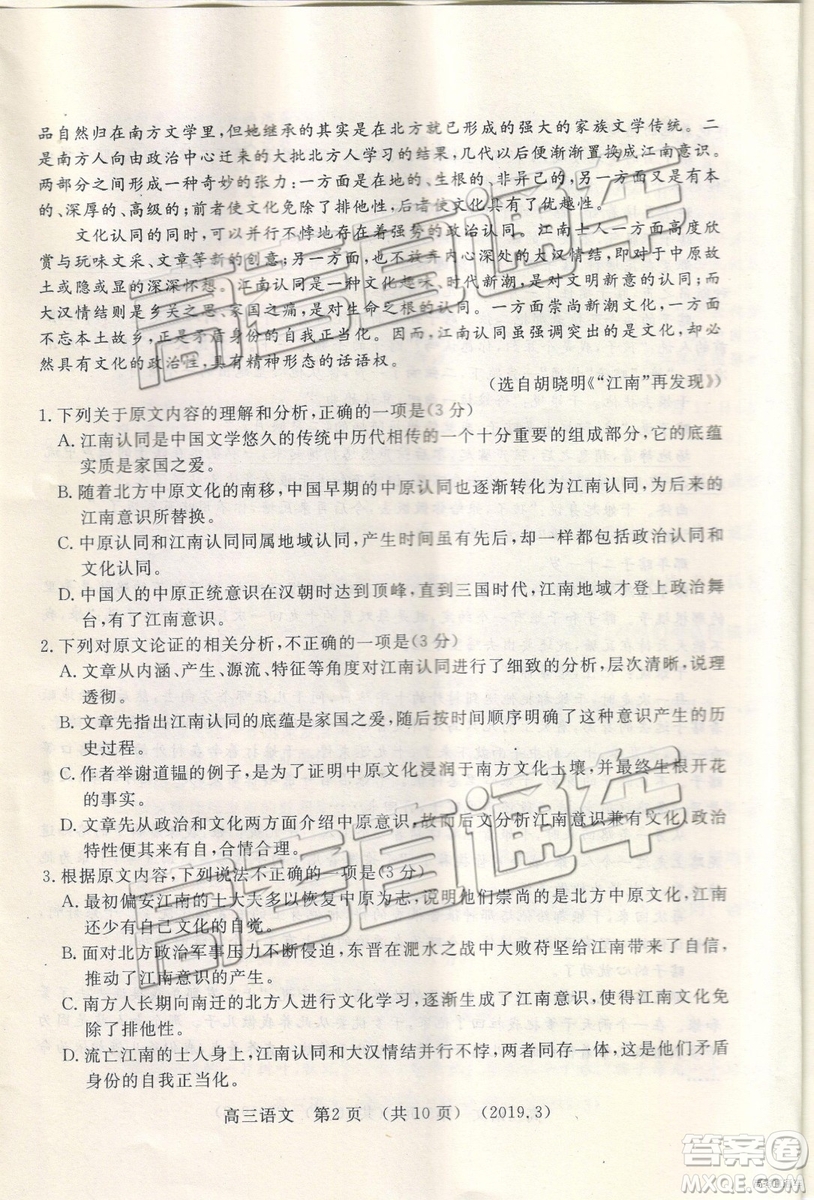 品自然归在南方文学里,但她继承的其实是在北方就已形成的强大的家族文学传统。二
是南方人向由政治中心迁来的大批北方人学习的结果,几代以后便渐渐置换成江南意识。
两部分之间形成一种奇妙的张力:一方面是在地的、生根的、非异己的,另一方面又是有本
的、深厚的、高级的;前者使文化免除了排他性,后者使文化具有了优越性。
文化认同的同时,可以并行不悖地存在着强势的政治认同。江南士人一方面高度欣
赏与玩味文采、文章等新的创意;另一方面,也不放弃内心深处的大汉情结,即对于中原故
土和山川的深深怀想。江南认同是一种文化趣味、时代新潮,是对文明新意的认同;而
大汉情结则是乡关之思、家国之痛,是对生命之根的认同。一方面崇尚新潮文化,一方面
不忘本土故乡,正是矛盾身份的自我正当化。因而,江南认同虽强调突出的是文化,却必
然具有文化的政治性,具有精神形态的话语权。
(选自胡晓明《“江南”再发现》)
1.下列关于原文内容的理解和分析,正确的一项是(3分)
A.江南认同是中国文学悠久的传统中历代相传的一个十分重要的组成部分,它的底蕴
实质是家国之爱。
B.随着北方中原文化的南移,中国早期的中原认同也逐渐转化为江南认同,为后来的
江南意识所替换。
C.中原认同和江南认同同属地域认同,产生时间虽有先后,却一样都包括政治认同和
文化认同。
D.中国人的中原正统意识在汉朝时达到顶峰,直到三国时代,江南地域才登上政治舞
台,有了江南意识。
2.下列对原文论证的相关分析,不正确的一项是(3分)
A.文章从内涵、产生、源流、特征等角度对江南认同进行了细致的分析,层次清晰,说理
透彻。
B.文章先指出江南认同的底蕴是家国之爱,随后按时间顺序明确了这种意识产生的历
史过程。
C.作者举谢道韫的例子,是为了证明中原文化浸润于南方文化土壤,并最终生根开花
的事实。
D.文章先从政治和文化两方面介绍中原意识,故而后文分析江南意识兼有文化、政治
特性便其来有自,合情合理。
3.根据原文内容,下列说法不正确的一项是(3分)
A.最初偏安江南的士大夫多以恢复中原为志,说明他们崇尚的是北方中原文化,江南
还少有自己文化的自觉。
B.面对北方政治军事压力不断侵迫,东晋在淝水之战中大败苻坚给江南带来了自信,
推动了江南意识的产生。
C.南方人长期向南迁的北方人进行文化学习,逐渐生成了江南意识,使得江南文化免
除了排他性。
D.流亡江南的士人身上,江南认同和大汉情结并行不悖,两者同存一体,这是他们矛盾
身份的自我正当化。
高三语文 第2页 (共10页) (2019.3)
高考直通车
高考直通车
答案圈
MXQE.COM